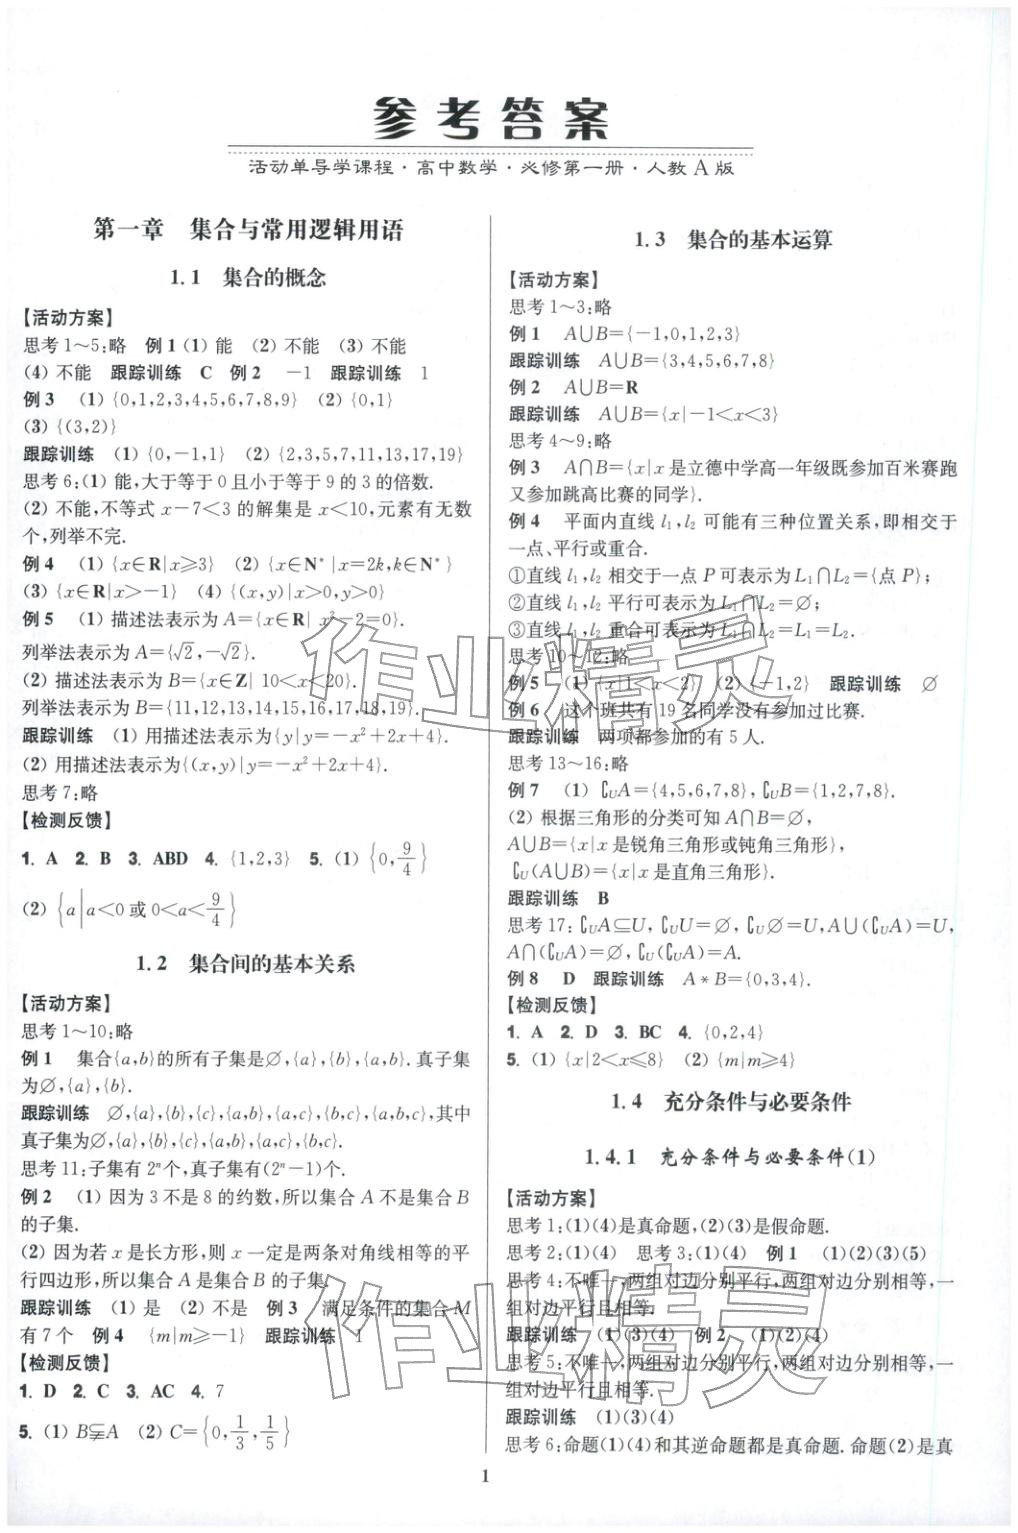 参考答案
活动单导学课程·高中数学·必修第一册·人教A版
第一章 集合与常用逻辑用语
1.1 集合的概念
【活动方案】
思考1～5:略 例1 (1) 能 (2) 不能 (3) 不能
(4) 不能 跟踪训练 C 例2 －1 跟踪训练 1
例3 (1) {0,1,2,3,4,5,6,7,8,9} (2) {0,1}
(3) {(3,2)}
跟踪训练 (1) {0,－1,1} (2) {2,3,5,7,11,13,17,19}
思考6:(1) 能,大于等于0且小于等于9的3的倍数.
(2) 不能,不等式x－7＜3的解集是x＜10,元素有无数
个,列举不完.
例4 (1) {x∈R|x≥3} (2) {x∈N*|x=2k,k∈N*}
(3) {x∈R|x＞－1} (4) {(x,y)|x＞0,y＞0}
例5 (1) 描述法表示为A={x∈R| x²－2=0}.
列举法表示为A={√2,－√2}.
(2) 描述法表示为B={x∈Z| 10＜x＜20}.
列举法表示为B={11,12,13,14,15,16,17,18,19}.
跟踪训练 (1) 用描述法表示为{y|y=－x²+2x+4}.
(2) 用描述法表示为{(x,y)|y=－x²+2x+4}.
思考7:略
【检测反馈】
1. A 2. B 3. ABD 4. {1,2,3} 5. (1) {0,9/4}
(2) {a|a＜0或0＜a＜9/4}
1.2 集合间的基本关系
【活动方案】
思考1～10:略
例1 集合{a,b}的所有子集是∅,{a},{b},{a,b}.真子集
为∅,{a},{b}.
跟踪训练 ∅,{a},{b},{c},{a,b},{a,c},{b,c},{a,b,c},其中
真子集为∅,{a},{b},{c},{a,b},{a,c},{b,c}.
思考11:子集有2ⁿ个,真子集有(2ⁿ－1)个.
例2 (1) 因为3不是8的约数,所以集合A不是集合B
的子集.
(2) 因为若x是长方形,则x一定是两条对角线相等的平
行四边形,所以集合A是集合B的子集.
跟踪训练 (1) 是 (2) 不是 例3 满足条件的集合M
有7个 例4 {m|m≥－1} 跟踪训练 1
【检测反馈】
1. D 2. C 3. AC 4. 7
5. (1) B⫋A (2) C={0,1/3,1/5}
1.3 集合的基本运算
【活动方案】
思考1～3:略
例1 A∪B={－1,0,1,2,3}
跟踪训练 A∪B={3,4,5,6,7,8}
例2 A∪B=R
跟踪训练 A∪B={x|－1＜x＜3}
思考4～9:略
例3 A∩B={x|x是立德中学高一年级既参加百米赛跑
又参加跳高比赛的同学}.
例4 平面内直线l₁,l₂可能有三种位置关系,即相交于
一点、平行或重合.
①直线l₁,l₂相交于一点P可表示为L₁∩L₂={点P};
②直线l₁,l₂平行可表示为L₁∩L₂=∅;
③直线l₁,l₂重合可表示为L₁∩L₂=L₁=L₂.
思考10～12:略
例5 (1) {x|1＜x＜2} (2) {－1,2} 跟踪训练 ∅
例6 这个班共有19名同学没有参加过比赛.
跟踪训练 两项都参加的有5人.
思考13～16:略
例7 (1) ∁ᵤA={4,5,6,7,8},∁ᵤB={1,2,7,8}.
(2) 根据三角形的分类可知A∩B=∅,
A∪B={x|x是锐角三角形或钝角三角形},
∁ᵤ(A∪B)={x|x是直角三角形}.
跟踪训练 B
思考17:∁ᵤA⊆U,∁ᵤU=∅,∁ᵤ∅=U,A∪(∁ᵤA)=U,
A∩(∁ᵤA)=∅,∁ᵤ(∁ᵤA)=A.
例8 D 跟踪训练 A*B={0,3,4}.
【检测反馈】
1. A 2. D 3. BC 4. {0,2,4}
5. (1) {x|2＜x≤8} (2) {m|m≥4}
1.4 充分条件与必要条件
1.4.1 充分条件与必要条件(1)
【活动方案】
思考1:(1)(4)是真命题,(2)(3)是假命题.
思考2:(1)(4) 思考3:(1)(4) 例1 (1)(2)(3)(5)
思考4:不唯一,两组对边分别平行,两组对边分别相等,一
组对边平行且相等.
跟踪训练 (1)(3)(4) 例2 (1)(2)(4)
思考5:不唯一,两组对边分别平行,两组对边分别相等,一
组对边平行且相等.
跟踪训练 (1)(3)(4)
思考6:命题(1)(4)和其逆命题都是真命题.命题(2)是真
1
作业精灵
作业精灵